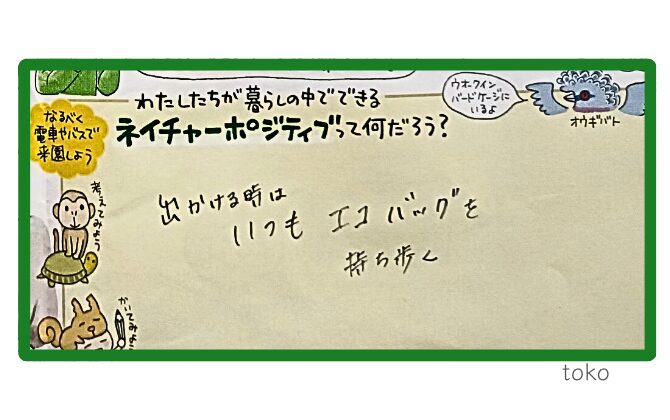 わたしたちが暮らしの中でできる
ネイチャーポジティブって何だろう?
ウオークイン
バードケージに
いるよ
オウギバト
なるべく
電車やバスで
来園しよう
考えてみよう
出かける時は
いつも エコバッグを
持ち歩く
かいてみよう
toko